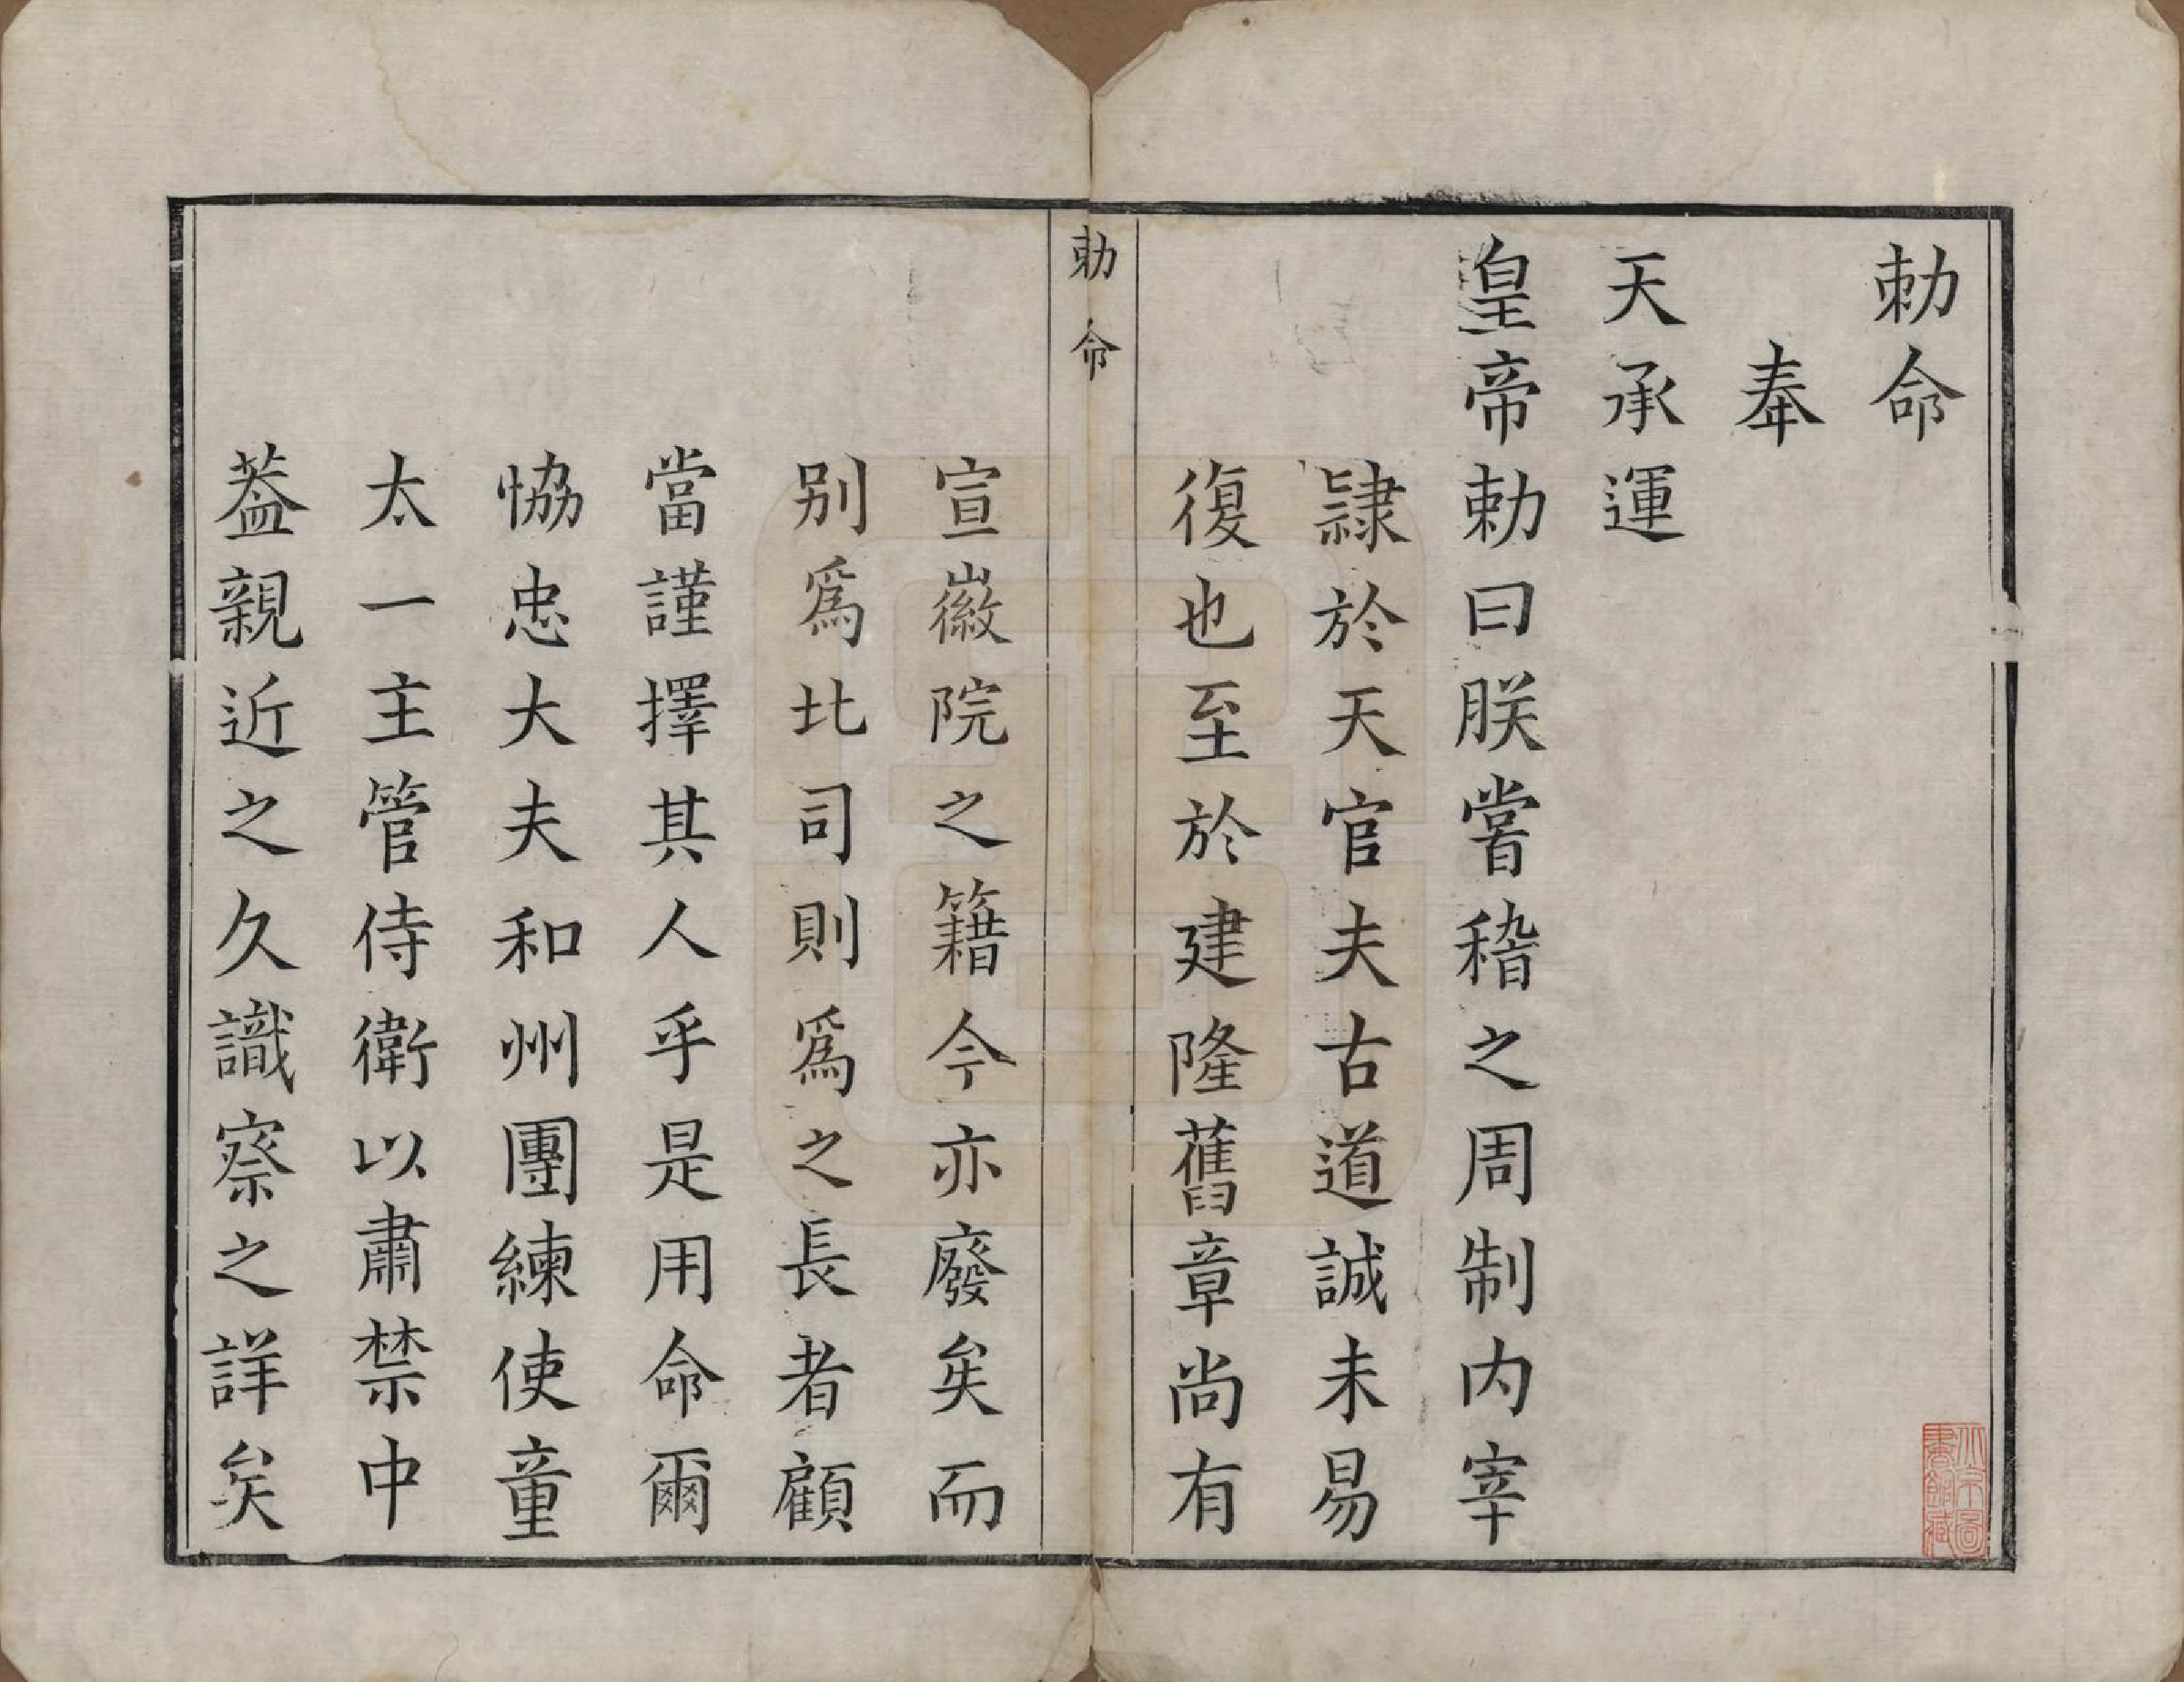 勅命
奉
天承運
皇帝勅曰朕嘗稽之周制内宰
隷於天官夫古道誠未易
復也至於建隆舊章尚有
勅命
宣徽院之籍今亦廢矣而
别爲北司則爲之長者顧
當謹擇其人乎是用命爾
恊忠大夫和州團練使童
太一主管侍衛以肅禁中
葢親近之久識察之詳矣